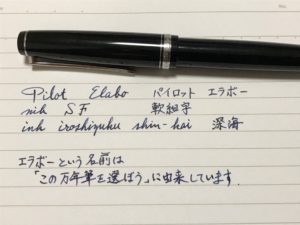 Pilot Elabo パイロット エラボー
nib SF 軟細字
ink iroshizuku shin-kai 深海
エラボーという名前は
「この万年筆を選ぼう」に由来しています.